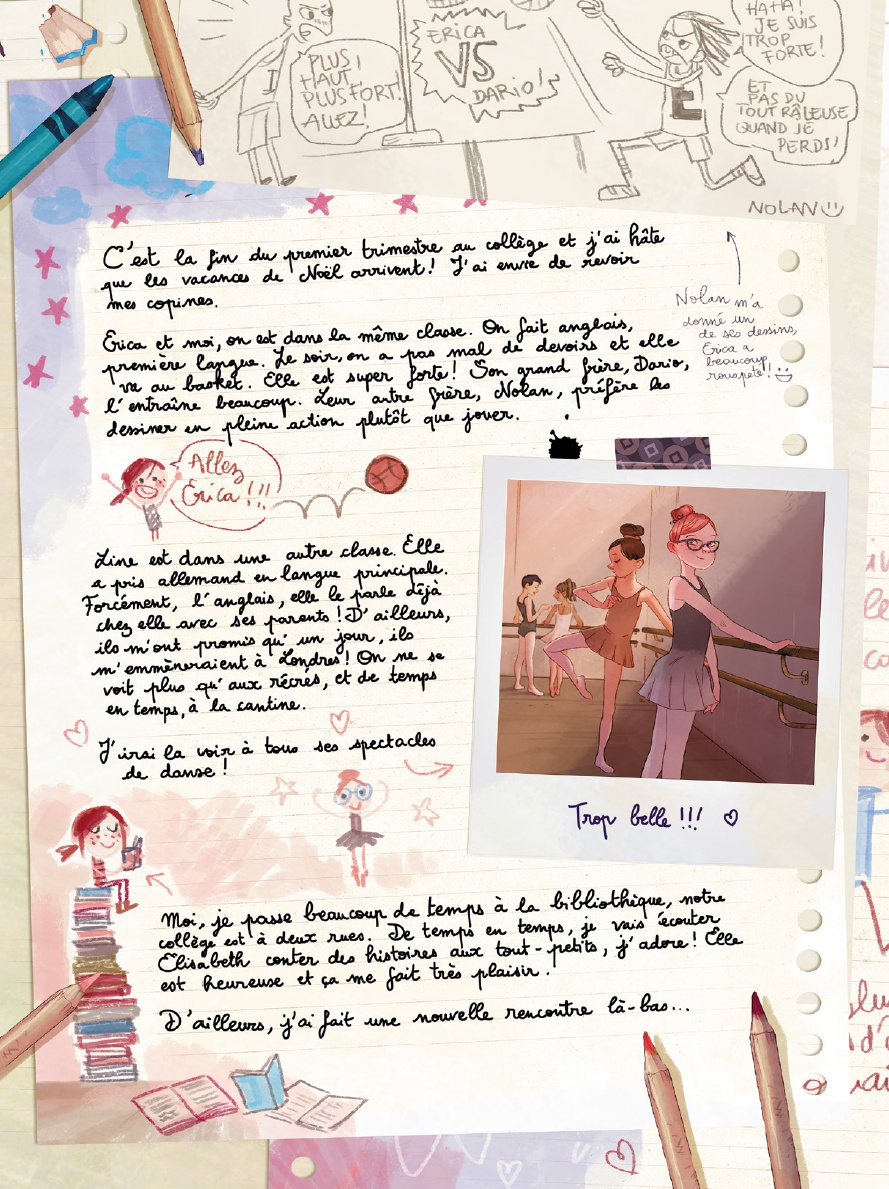 PLUS
HAUT,
PLUS FORT!
ALLEZ!
ERICA
VS
DARIO!
HAHA!
JE SUIS
TROP
FORTE!
ET
PAS DU
TOUT RÂLEUSE
QUAND JE
PERDS!
E
NOLAN
C'est la fin du premier trimestre au collège et j'ai hâte
que les vacances de Noël arrivent! J'ai envie de revoir
mes copines.
Nolan m'a
donné un
de ses dessins,
Erica a
beaucoup
rouspété!
Erica et moi, on est dans la même classe. On fait anglais,
première langue. Le soir, on a pas mal de devoirs et elle
va au basket. Elle est super forte! Son grand frère, Dario,
l'entraîne beaucoup. Leur autre frère, Nolan, préfère les
dessiner en pleine action plutôt que jouer.
Allez
Erica!!!
Line est dans une autre classe. Elle
a pris allemand en langue principale.
Forcément, l'anglais, elle le parle déjà
chez elle avec ses parents! D'ailleurs,
ils m'ont promis qu'un jour, ils
m'emmèneraient à Londres! On ne se
voit plus qu'aux récrés, et de temps
en temps, à la cantine.
J'irai la voir à tous ses spectacles
de danse!
Trop belle!!!
Moi, je passe beaucoup de temps à la bibliothèque, notre
collège est à deux rues. De temps en temps, je vais écouter
Elisabeth conter des histoires aux tout-petits, j'adore! Elle
est heureuse et ça me fait très plaisir.
D'ailleurs, j'ai fait une nouvelle rencontre là-bas...